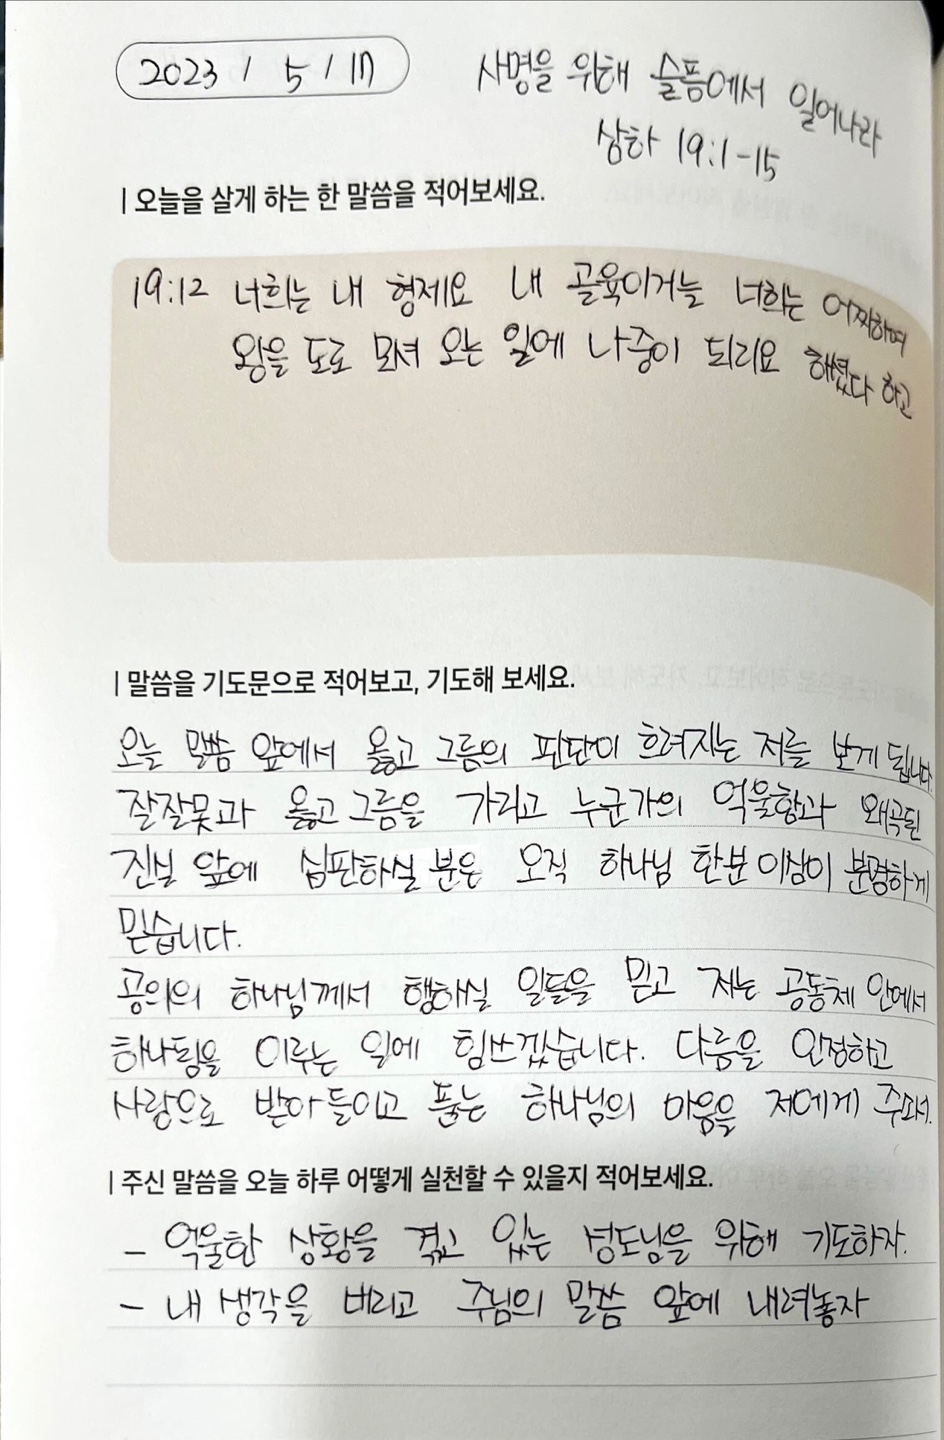 2023 / 5 / 17
사명을 위해 슬픔에서 일어나라
삼하 19:1-15
| 오늘을 살게 하는 한 말씀을 적어보세요.
19:12 너희는 내 형제요 내 골육이거늘 너희는 어찌하여
왕을 도로 모셔 오는 일에 나중이 되리요 하셨다 하고
| 말씀을 기도문으로 적어보고, 기도해 보세요.
오늘 말씀 앞에서 옳고 그름의 판단이 흐려지는 저를 보게 됩니다.
잘잘못과 옳고 그름을 가리고 누군가의 억울함과 왜곡된
진실 앞에 심판하실 분은 오직 하나님 한분 이심이 분명하게
믿습니다.
공의의 하나님께서 행하실 일들을 믿고 저는 공동체 안에서
하나됨을 이루는 일에 힘쓰겠습니다. 다름을 인정하고
사랑으로 받아들이고 품는 하나님의 마음을 저에게 주소서.
| 주신 말씀을 오늘 하루 어떻게 실천할 수 있을지 적어보세요.
- 억울한 상황을 겪고 있는 성도님을 위해 기도하자.
- 내 생각을 버리고 주님의 말씀 앞에 내려놓자